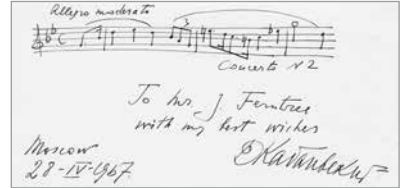 Allegro moderato
3
Concerto N2
To Mr. J. Ferntree
with my best wishes
Moscow
28-IV-1967.